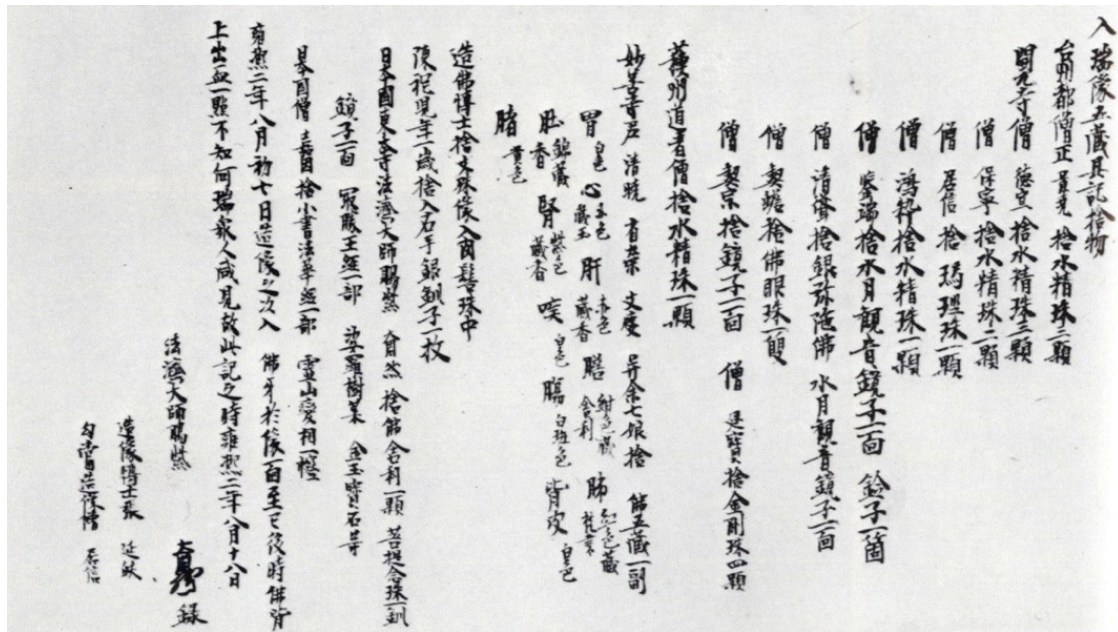 入瑞像五藏具記捨物
台州都僧正 景堯 捨水精珠三顆
開元寺僧 德宣 捨水精珠三顆
僧 保寧 捨水精珠二顆
僧 居信 捨 瑪瑙珠一顆
僧 鴻粹 捨水精珠一顆
僧 鑒端 捨水月觀音鏡子一面 鈴子一箇
僧 清聳 捨銀弥陁佛 水月觀音鏡子一面
僧 契蟾 捨佛眼珠一雙
僧 契宗 捨鏡子一面 僧 延寶 捨金剛珠四顆
道者僧 捨水精珠一顆
妙善寺尼 清曉 省榮 文慶 并余七娘捨 佛五藏一副
胃 白色 心 藏玉 肝 藏香 膽 舍利 肺 紅色藏
肚 錦藏香 腎 紫色藏香 白色 腸 白
黃色
造佛博士捨文殊像入肉髻珠中
陳祀兒年一歲捨入右手銀釧子一枚
日本國東大寺法濟大師賜紫 奝然 捨佛舍利一顆 菩提念珠一釧
鏡子一面 最勝王經一部 娑羅樹葉 金玉寶石等
日本國僧 嘉因 捨小書法華經一部 靈山變相一幀
雍熙二年八月初七日造像之次入 佛牙於像面至巳後時佛背
上出血一點不知何瑞衆人咸見故此記之時雍熙二年八月十八日
法濟大師賜紫 奝然 錄
造像博士張 延皎
勾當造像僧 居信